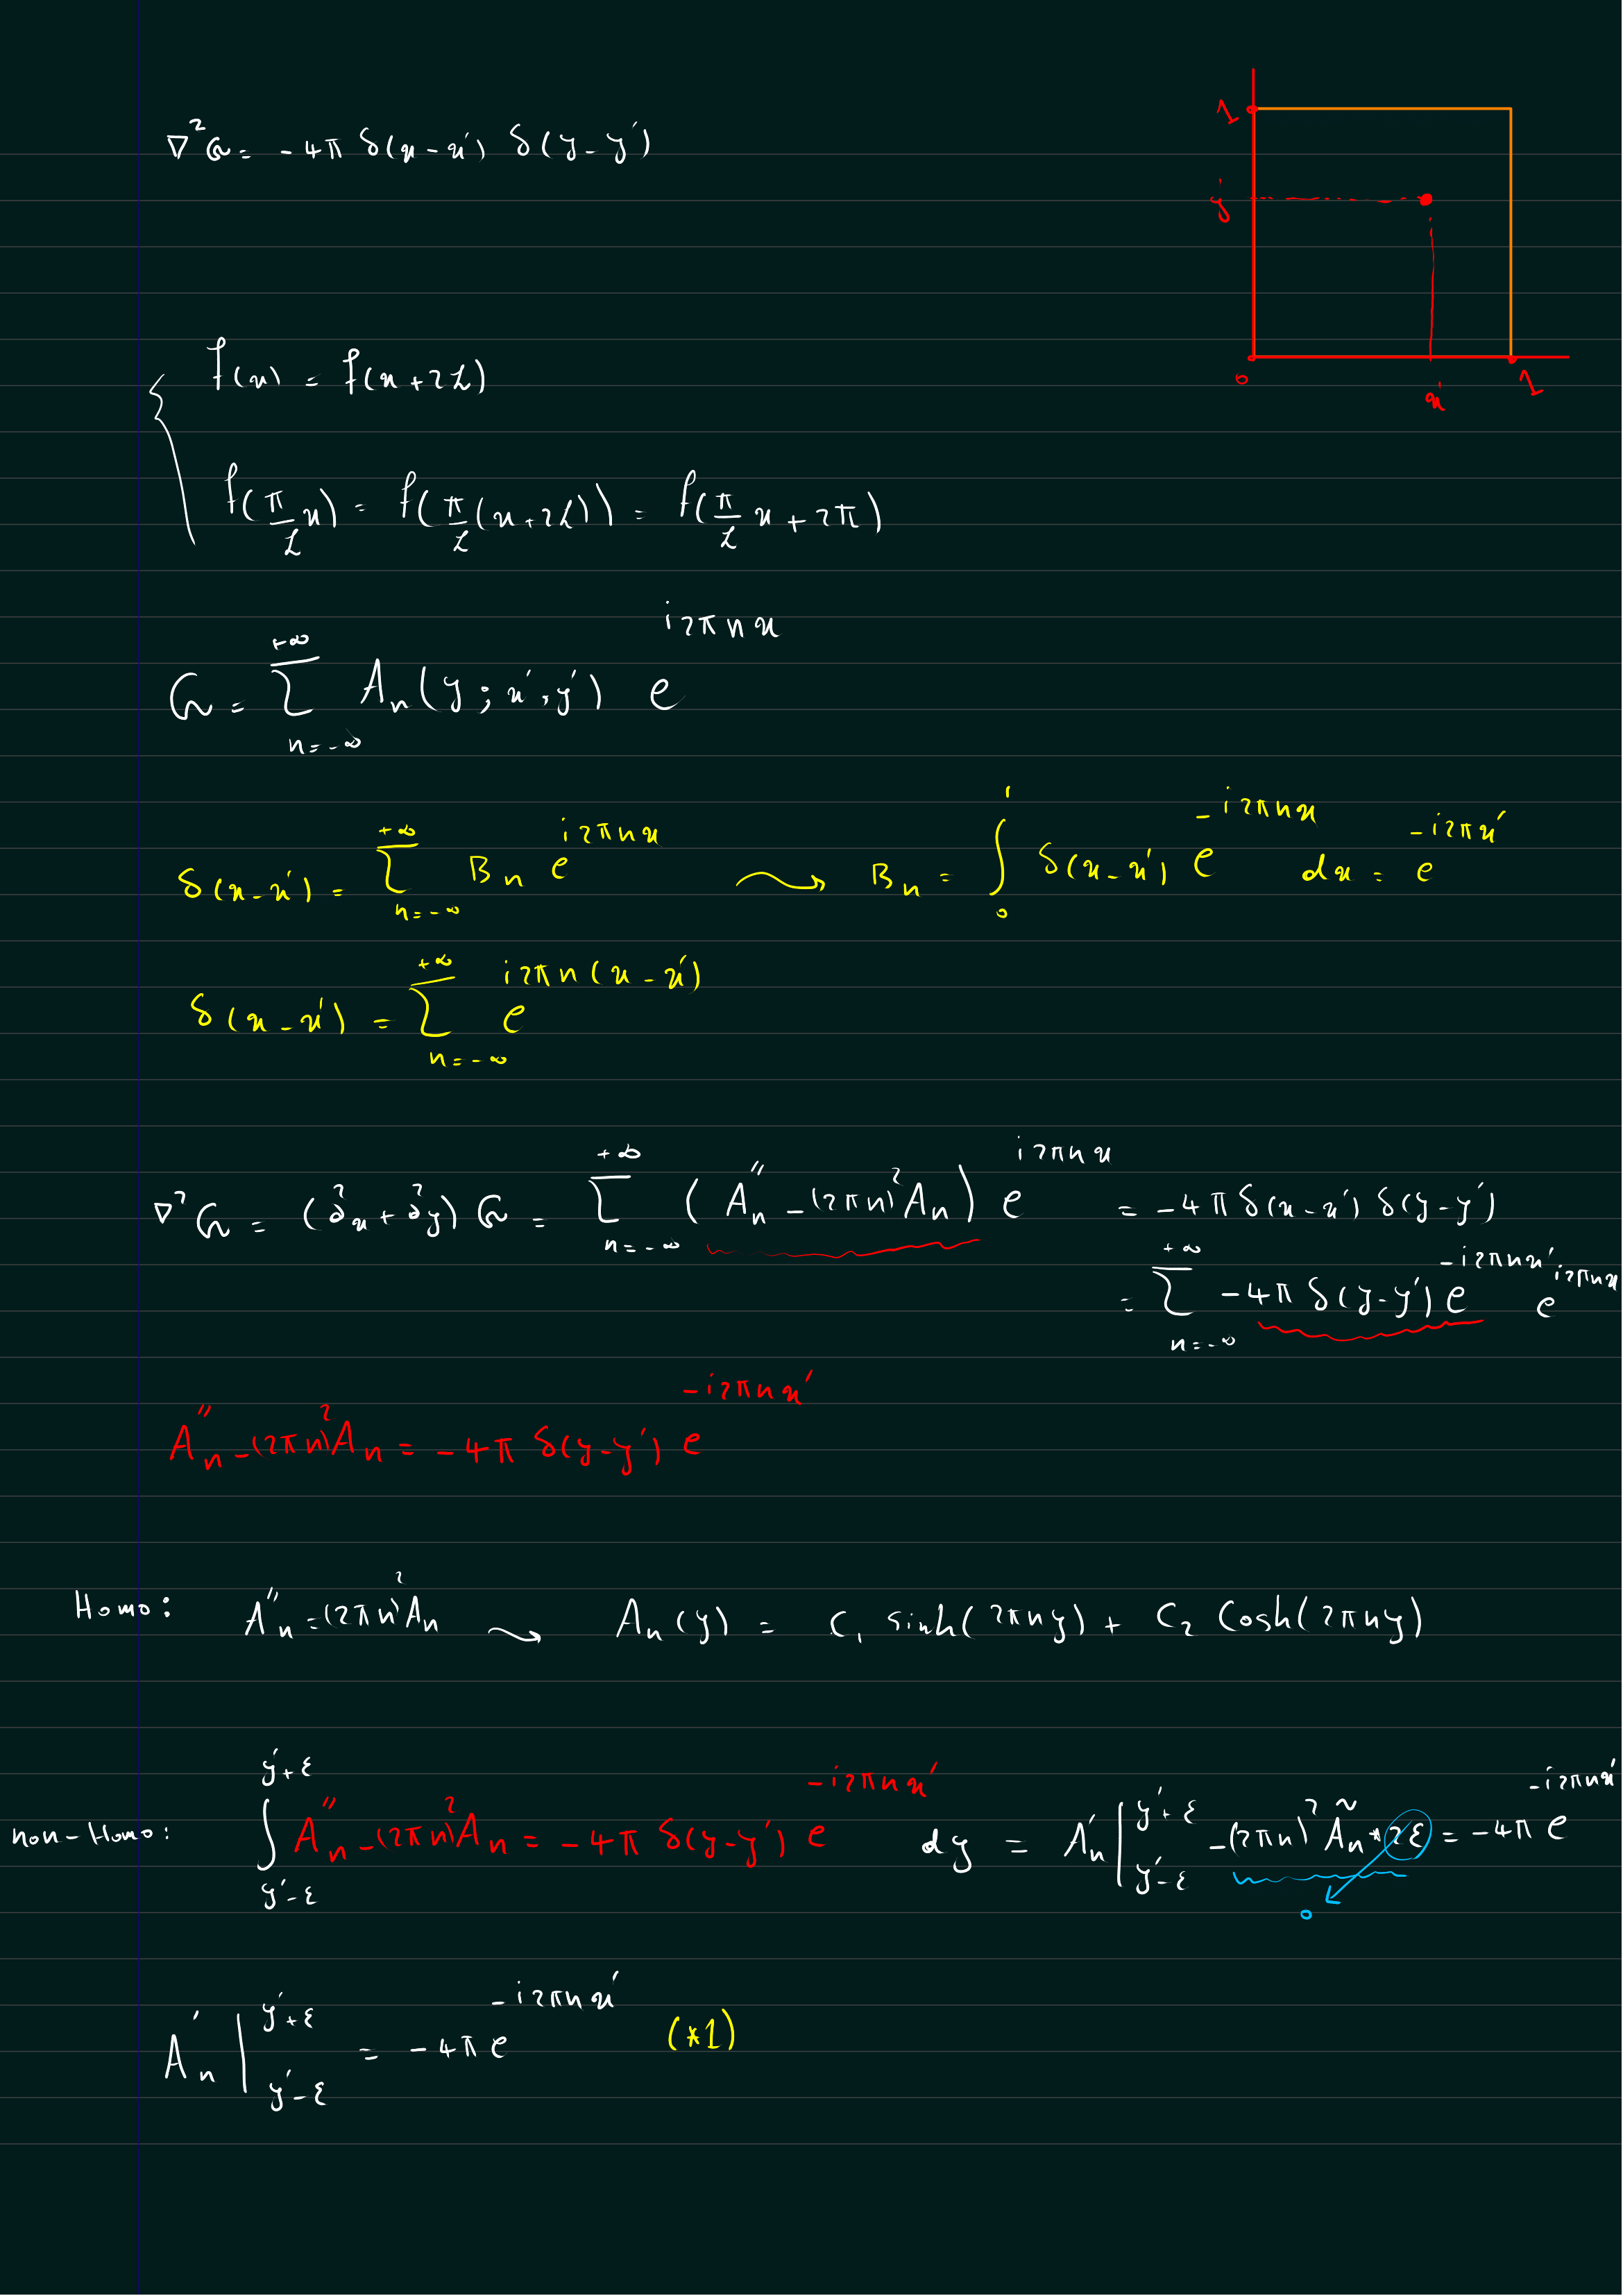 ∇²G = -4π δ(x-x') δ(y-y')
1
y'
0
x'
1
f(x) = f(x+2L)
f(π/L x) = f(π/L (x+2L)) = f(π/L x + 2π)
G = Σ_{n=-∞}^{+∞} A_n(y; x', y') e^{i2πnx}
δ(x-x') = Σ_{n=-∞}^{+∞} B_n e^{i2πnx} ⇝ B_n = ∫_0^1 δ(x-x') e^{-i2πnx} dx = e^{-i2πx'}
δ(x-x') = Σ_{n=-∞}^{+∞} e^{i2πn(x-x')}
∇²G = (∂²x + ∂²y) G = Σ_{n=-∞}^{+∞} (A''_n - (2πn)² A_n) e^{i2πnx} = -4π δ(x-x') δ(y-y')
= Σ_{n=-∞}^{+∞} -4π δ(y-y') e^{-i2πnx'} e^{i2πnx}
A''_n - (2πn)² A_n = -4π δ(y-y') e^{-i2πnx'}
Homo: A''_n = (2πn)² A_n ⇝ A_n(y) = C_1 sinh(2πny) + C_2 Cosh(2πny)
non-Homo: ∫_{y'-ε}^{y'+ε} A''_n - (2πn)² A_n = -4π δ(y-y') e^{-i2πnx'} dy = A'_n |_{y'-ε}^{y'+ε} - (2πn)² Ã_n * 2ε = -4π e^{-i2πnx'}
0
A'_n |_{y'-ε}^{y'+ε} = -4π e^{-i2πnx'} (*1)